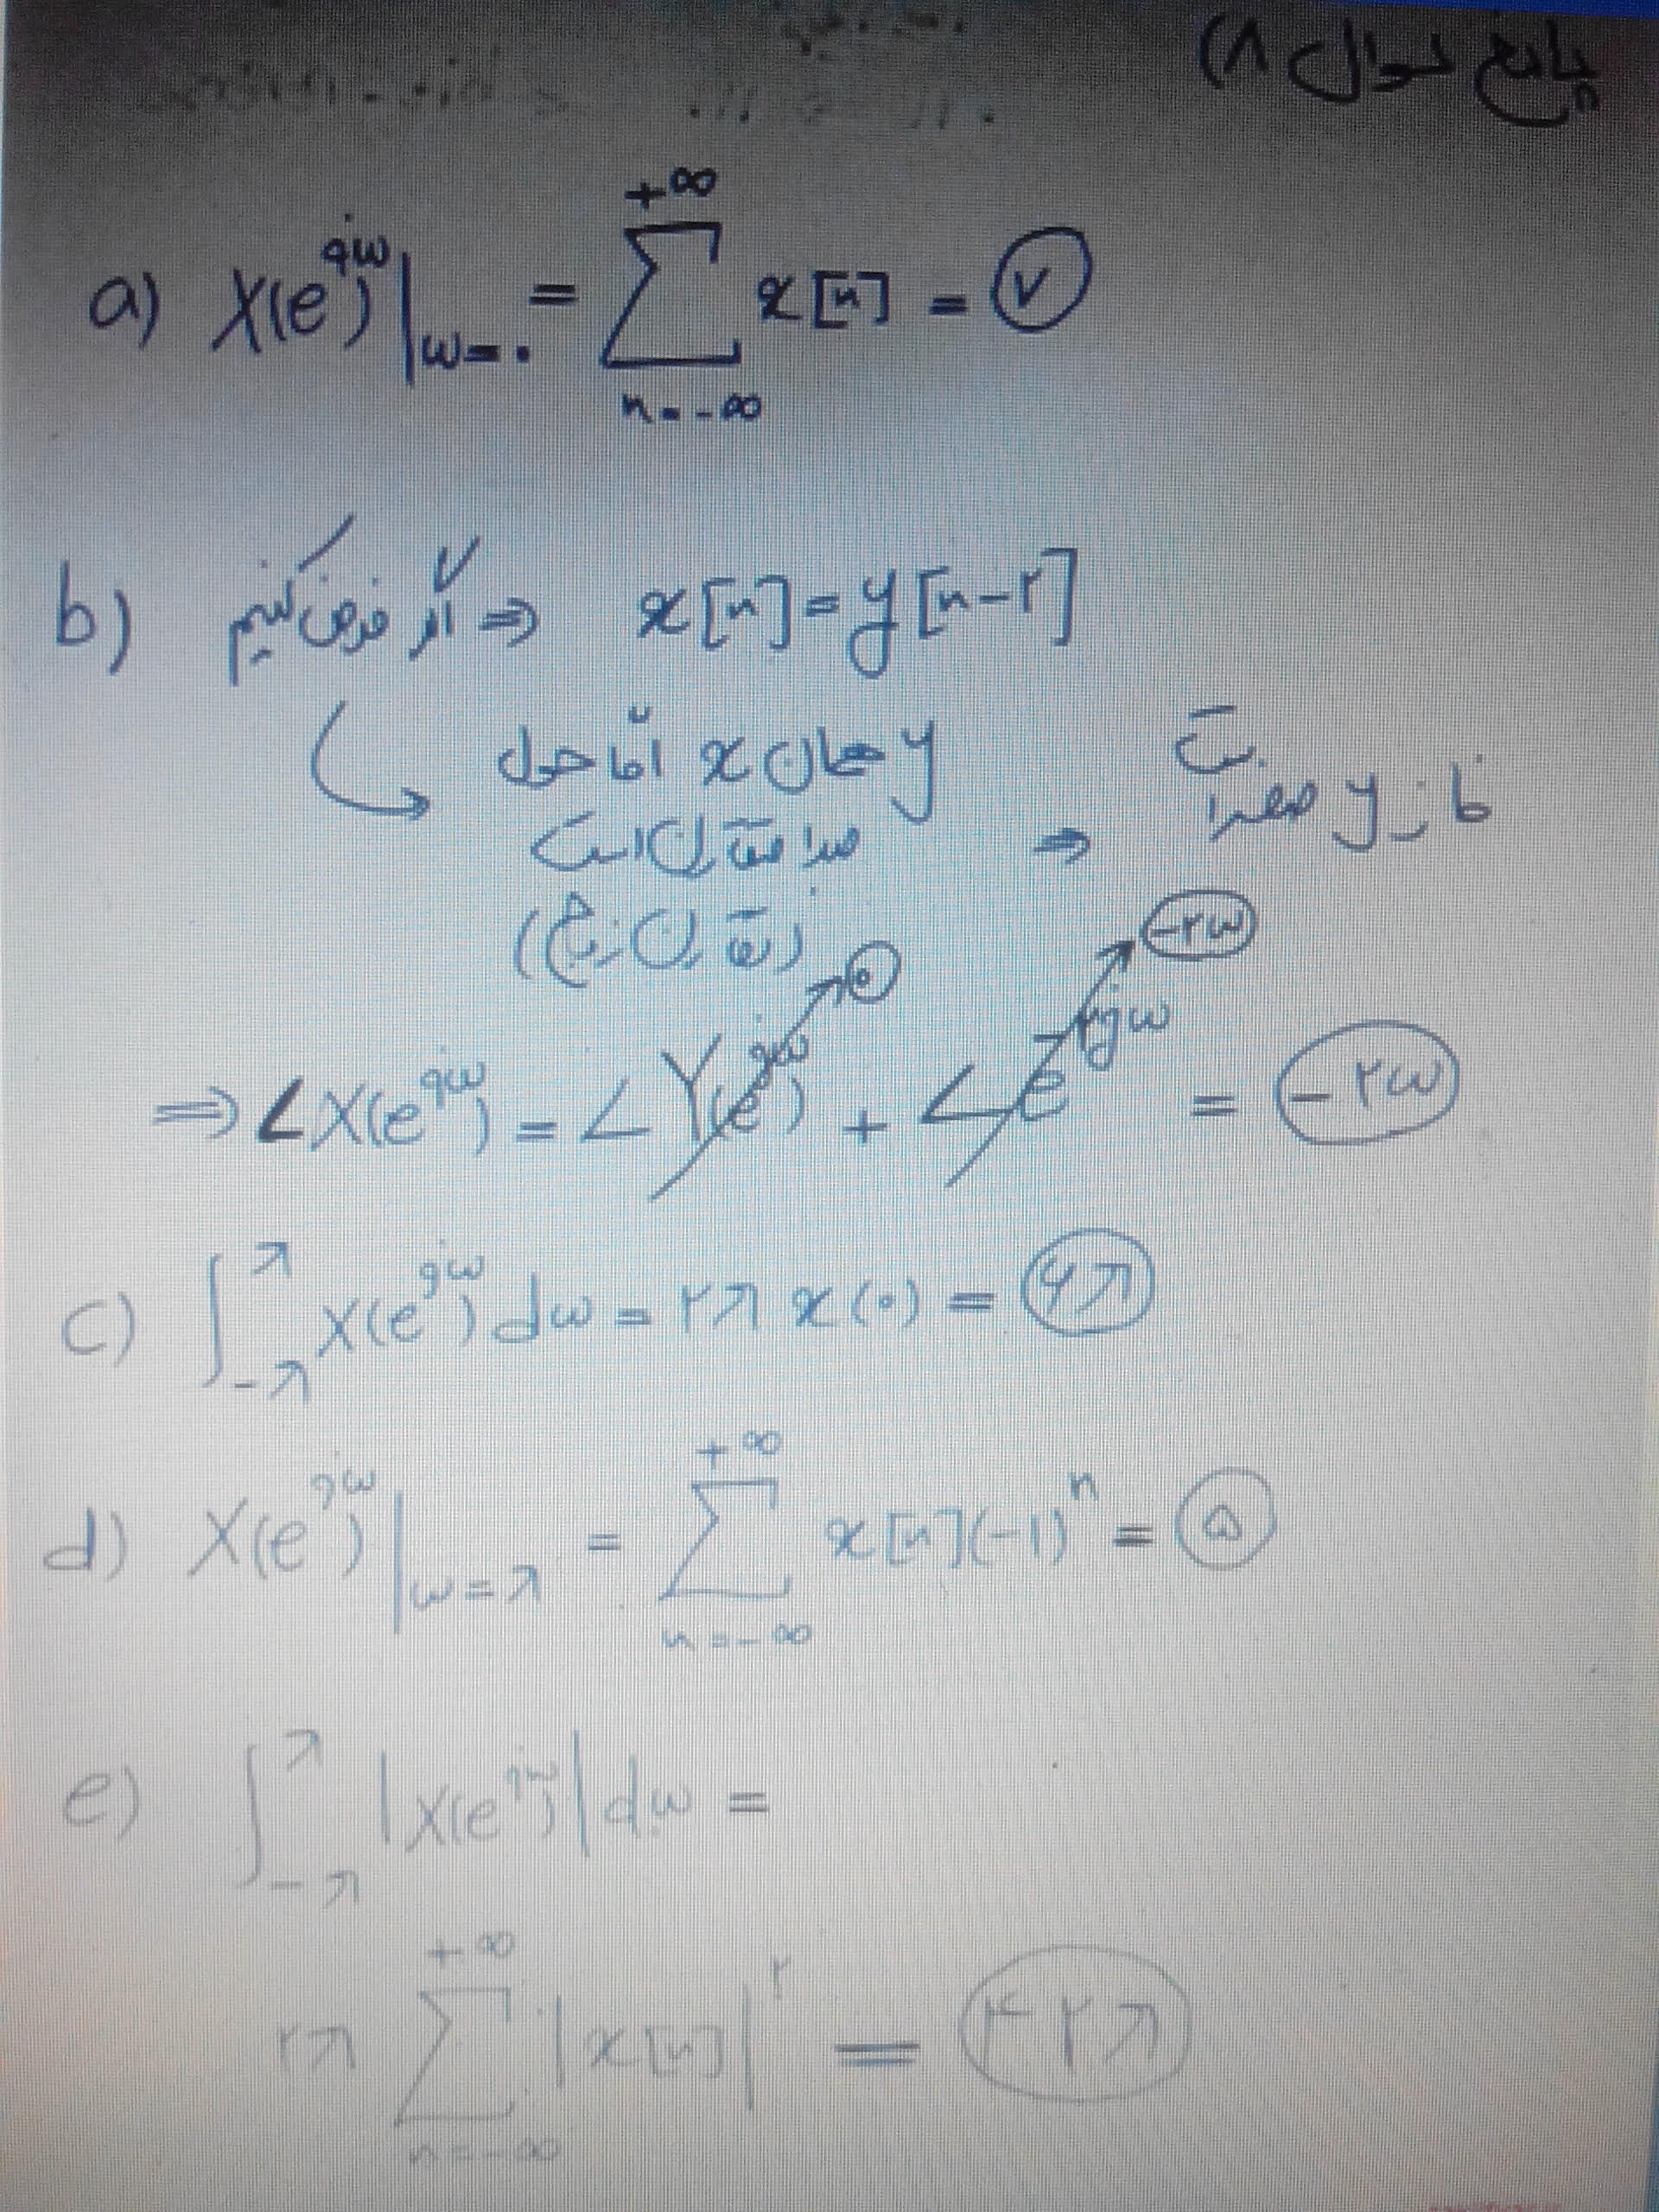 پاسخ سوال ۸)
a) X(e^jω)|ω=۰ = Σ n=-∞ +∞ x[n] = ۷
b) اگر فرض کنیم ⇒ x[n] = y[n-۲]
y همان x اما حول
مبدا متقارن است ⇒ فاز y صفر است
(تقارن زوج)
۰ -۲ω
⇒ ∠X(e^jω) = ∠Y(e^jω) + ∠e^-۲jω = -۲ω
c) ∫-π π X(e^jω) dω = ۲π x(۰) = ۶π
d) X(e^jω)|ω=π = Σ n=-∞ +∞ x[n](-1)^n = ۵
e) ∫-π π |X(e^jω)| dω =
۲π Σ n=-∞ +∞ |x[n]|^۲ = ۴۲π